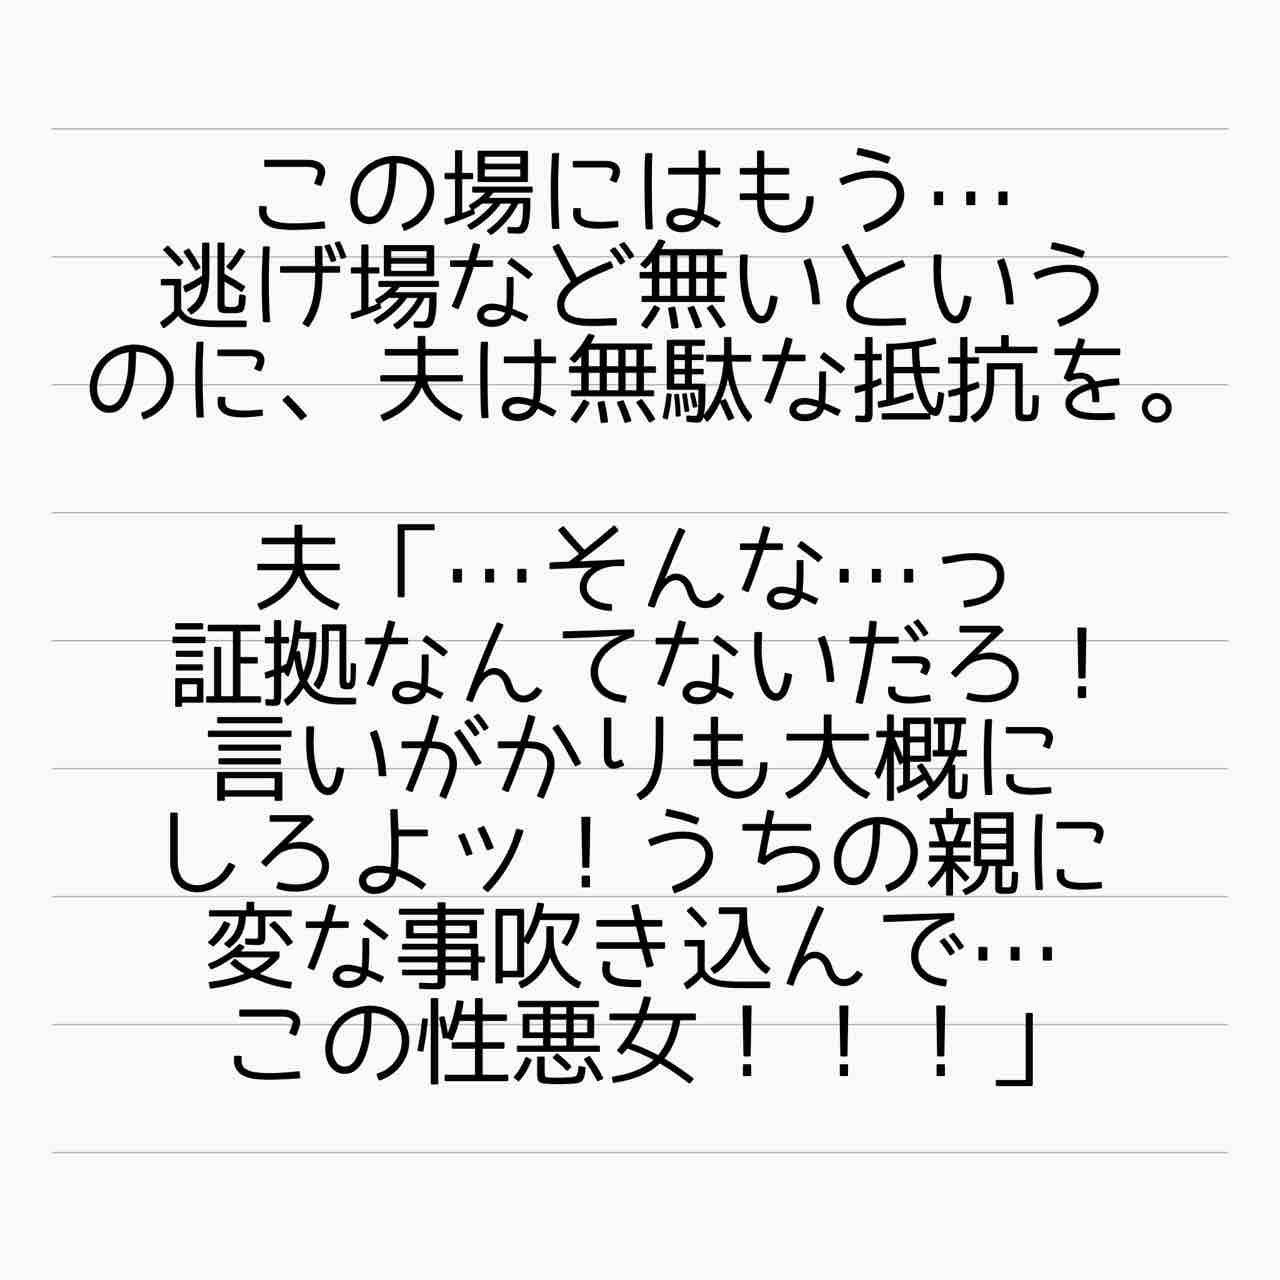 この場にはもう…
逃げ場など無いという
のに、夫は無駄な抵抗を。
夫「…そんな…っ
証拠なんてないだろ！
言いがかりも大概に
しろよッ！うちの親に
変な事吹き込んで…
この性悪女！！！」